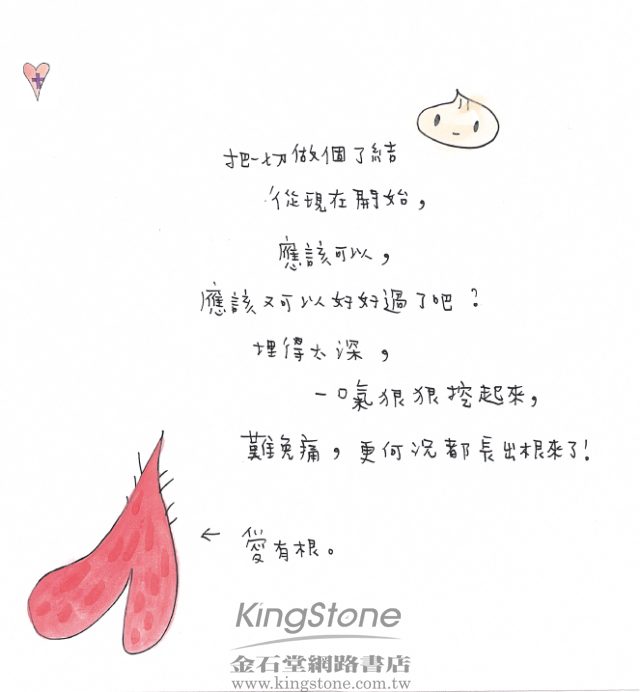 把一切做個了結
從現在開始，
應該可以，
應該又可以好好過了吧？
埋得太深，
一口氣狠狠挖起來，
難免痛，更何況都長出根來了！
← 愛有根。
KingStone
金石堂網路書店
www.kingstone.com.tw